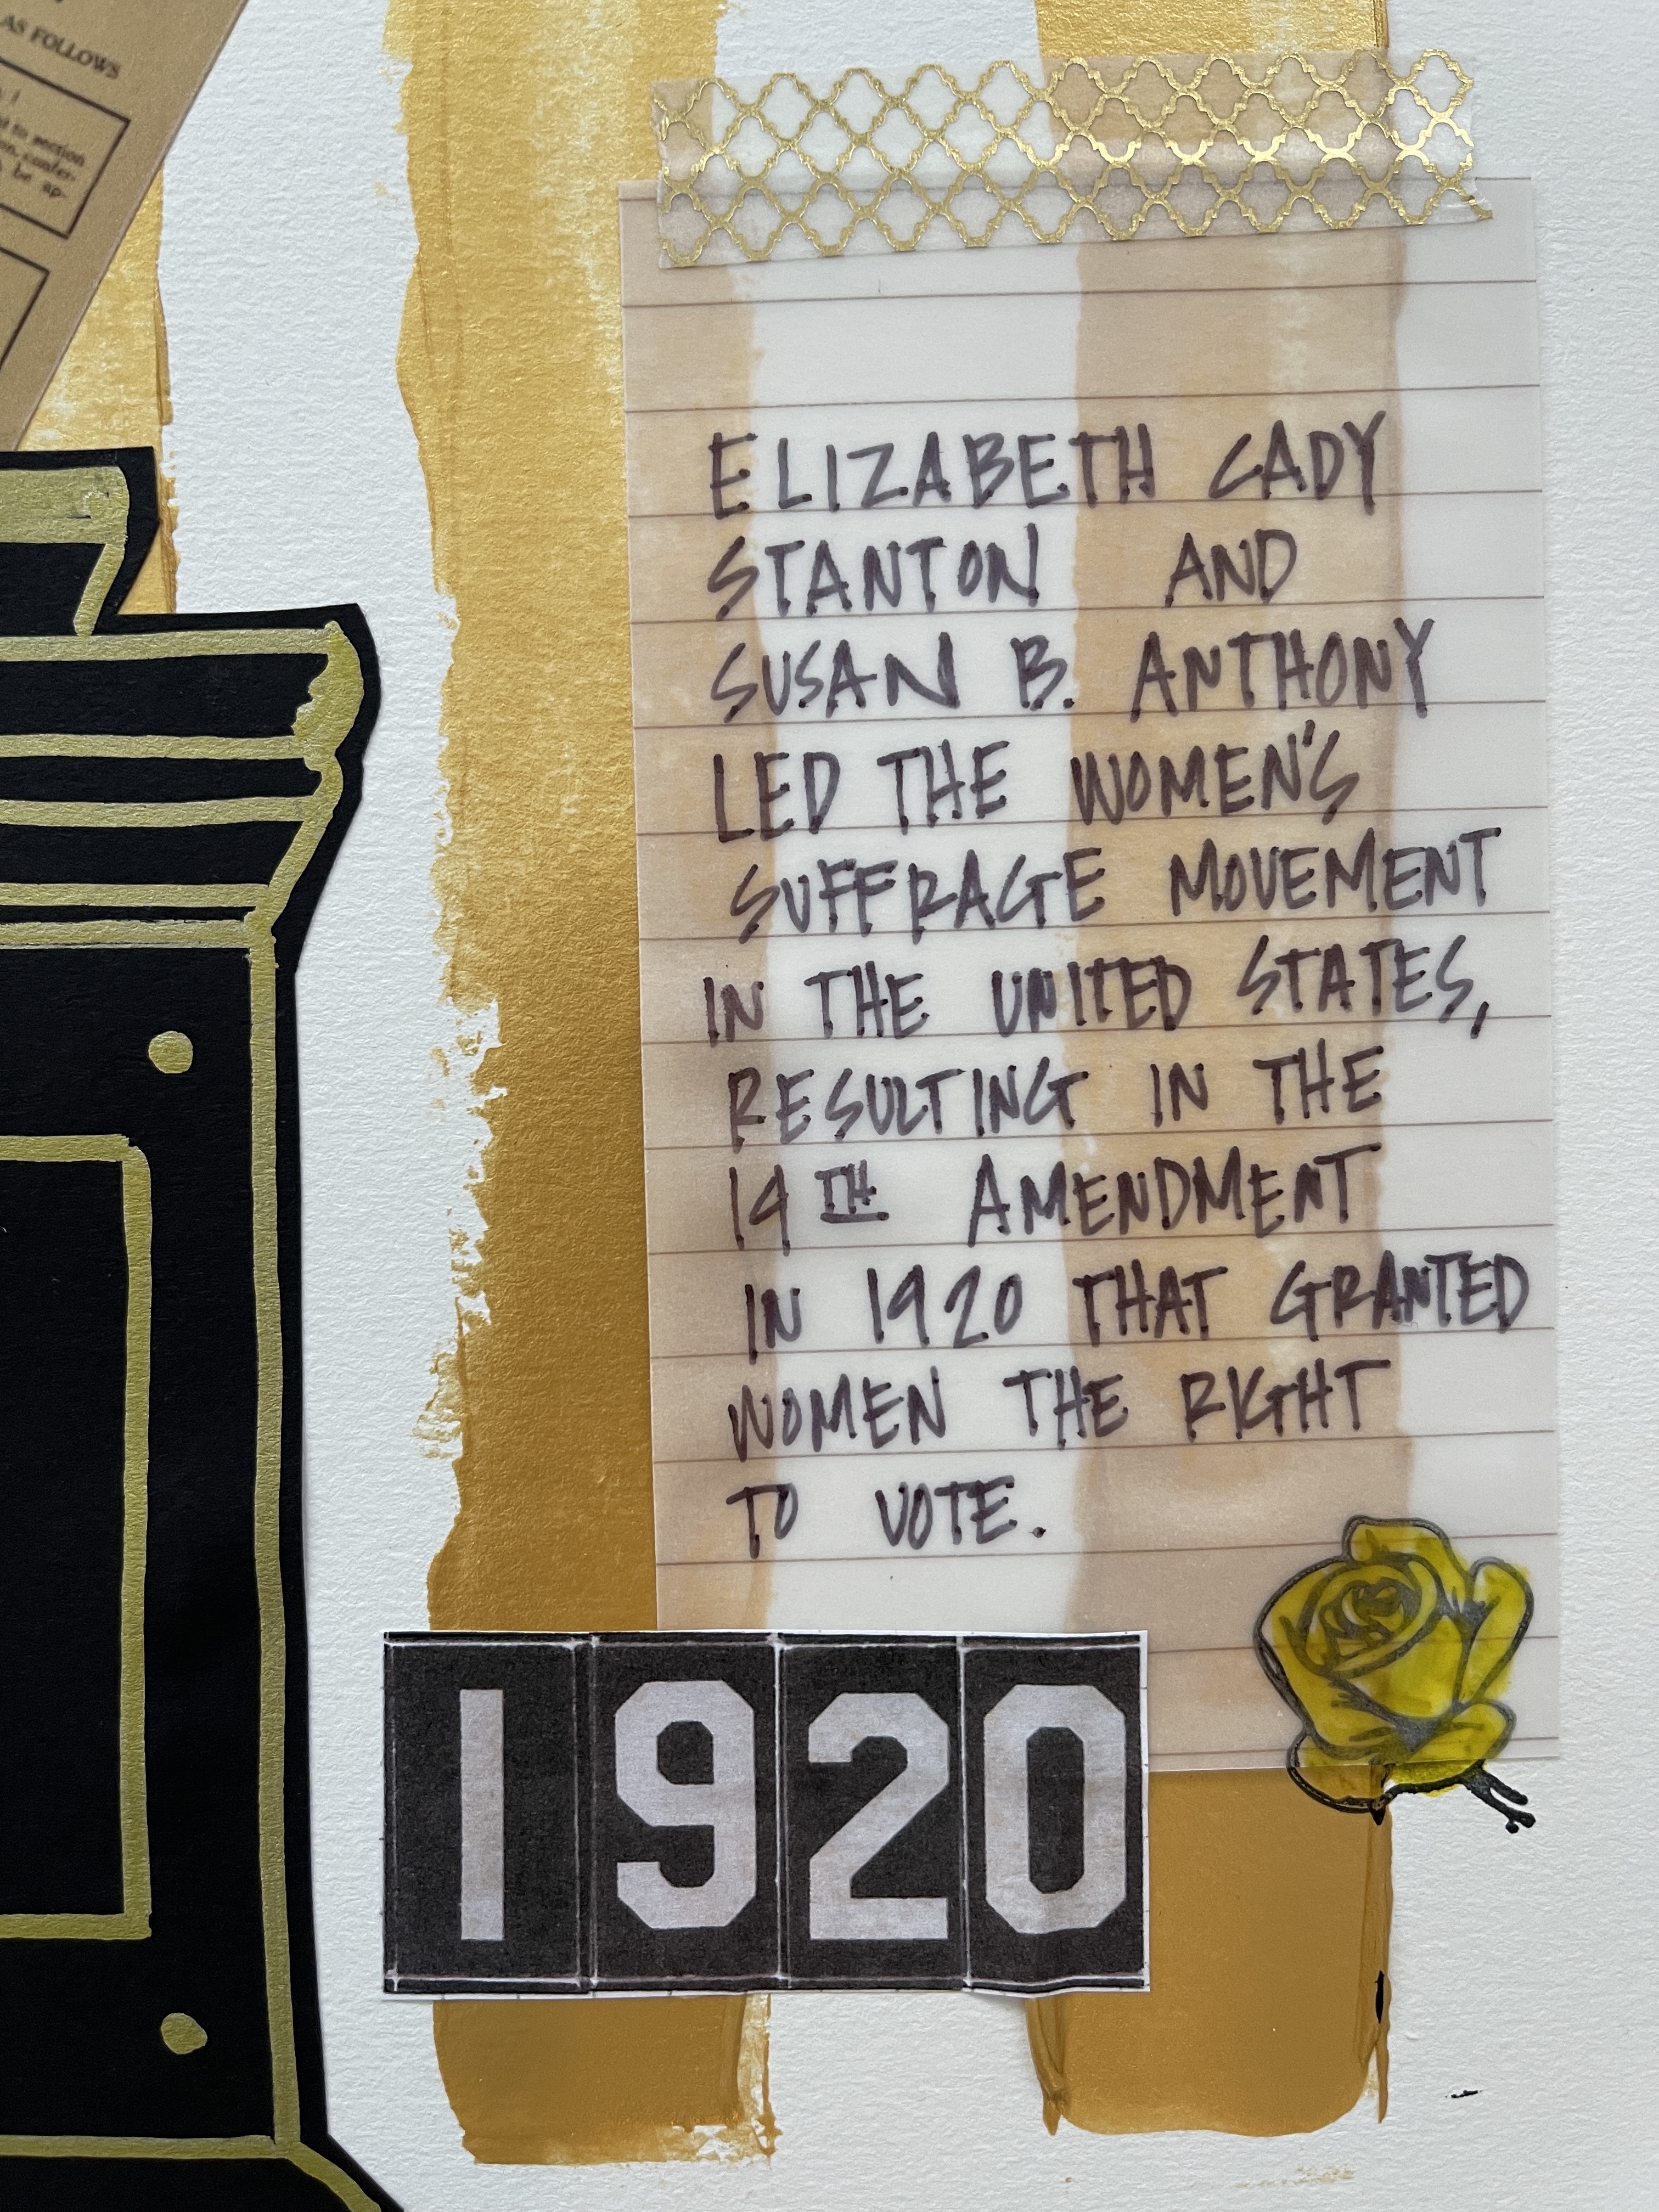 AS FOLLOWS
to section
be ap-
ELIZABETH CADY
STANTON AND
SUSAN B. ANTHONY
LED THE WOMEN'S
SUFFRAGE MOVEMENT
IN THE UNITED STATES,
RESULTING IN THE
19TH AMENDMENT
IN 1920 THAT GRANTED
WOMEN THE RIGHT
TO VOTE.
1920